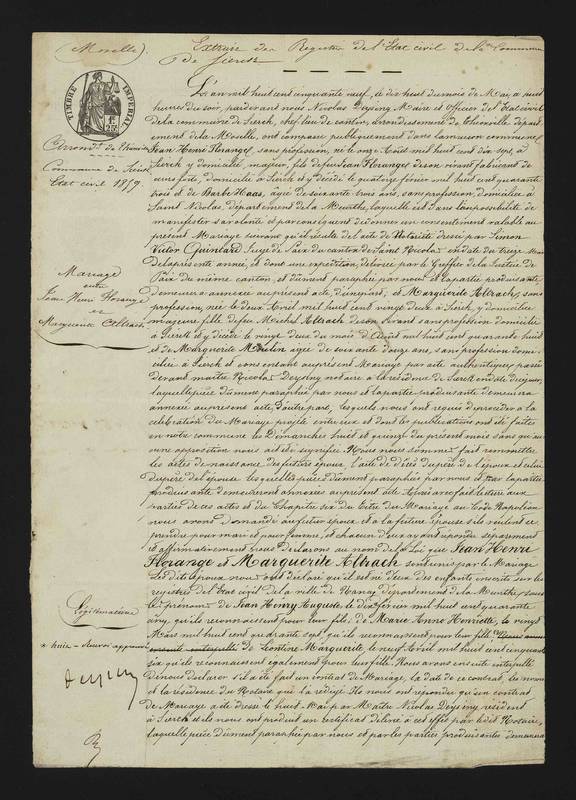 (Moselle)
Extrait des Registres de l'Etat civil de la Commune
de Sierck
TIMBRE IMPERIAL
1F. 25C.
Arrondt. de Thionville
Commune de Sierck
Etat civil 1859.
Mariage
entre
Jean Henri Florange
et
Marguerite Altrach
L'an mil huit cent cinquante neuf, le dix huit du mois de Mai, à huit
heures du soir, pardevant nous Nicolas Deysing Maire et Officier de l'Etat civil
de la commune de Sierck, chef lieu de canton, arrondissement de Thionville, départ-
ement de la Moselle, ont comparu publiquement dans la maison commune
Jean Henri Florange, sans profession, né le onze Août mil huit cent dix sept, à
Sierck y domicilié, majeur, fils de feu Jean Florange de son vivant fabricant de
domicilié à Sierck et y décédé le quatorze février mil huit cent quarante
trois et de Barbe Haas, âgée de soixante trois ans, sans profession, domiciliée à
Saint Nicolas, département de la Meurthe, laquelle est dans l'impossibilité de
manifester sa volonté et par conséquent de donner un consentement valable au
présent Mariage suivant qu'il résulte de l'acte de Notoriété dressé par Simon
Victor Quintard Juge de Paix du canton de Saint Nicolas en date du treize Mai
de la présente année, et dont une expédition, délivrée par le Greffe de la Justice de
Paix du même canton, et dûment paraphée par nous et la partie produisante,
demeurera annexée au présent acte, d'une part, et Marguerite Altrach, sans
profession, née le deux Avril mil huit cent vingt deux à Sierck, y domiciliée
majeure, fille de feu Michel Altrach de son vivant sans profession domicilié
à Sierck et y décédé le vingt deux du mois d'Août mil huit cent quarante huit
et de Marguerite Moulin âgée de soixante douze ans, sans profession, domi-
ciliée à Sierck et consentant au présent Mariage par acte authentique, passé
devant maître Nicolas Deysing notaire à la résidence de Sierck en date de ce jour,
laquelle pièce dûment paraphée par nous et la partie produisante demeurera
annexée au présent acte, d'autre part, lesquels nous ont requis de procéder à la
célébration du Mariage projeté entre eux et dont les publications ont été faites
en notre commune les Dimanches huit et quinze du présent mois sans qu'au-
cune opposition nous ait été signifiée. Nous nous sommes fait remettre
les actes de naissance des futurs époux, l'acte de décès du père de l'époux et celui
du père de l'épouse lesquelles pièces dûment paraphées par nous et par la partie
produisante demeureront annexées au présent acte. Après avoir fait lecture aux
parties de ces actes et du Chapitre six du titre du Mariage au Code Napoléon
nous avons demandé au futur époux et à la future épouse s'ils veulent se
prendre pour mari et pour femme, et chacun d'eux ayant répondu séparément
et affirmativement Nous déclarons au nom de la Loi que Jean Henri
Florange et Marguerite Altrach sont unis par le Mariage
Lesdits époux nous ont déclaré qu'il est né d'eux des enfants inscrits sur les
registres de l'Etat civil de la ville de Nancy département de la Meurthe, sous
les prénoms de Jean Henry Auguste le dix février mil huit cent quarante
cinq, qu'ils reconnaissent pour leur fils; de Marie Anne Henriette, le vingt
Mars mil huit cent quarante sept, qu'ils reconnaissent pour leur fille;
de Léontine Marguerite, le neuf Avril mil huit cent cinquante
six, qu'ils reconnaissent également pour leur fille. Nous avons ensuite interpellé
de nous déclarer s'il a été fait un contrat de Mariage, la date de ce contrat, les noms
et la résidence du Notaire qui l'a rédigé. Ils nous ont répondu que son contrat
de Mariage a été dressé le huit Mai par Maître Nicolas Deysing résident
à Sierck et ils nous ont produit un certificat délivré à cet effet par ledit Notaire,
laquelle pièce dûment paraphée par nous et par les parties produisantes demeurera
Légitimation